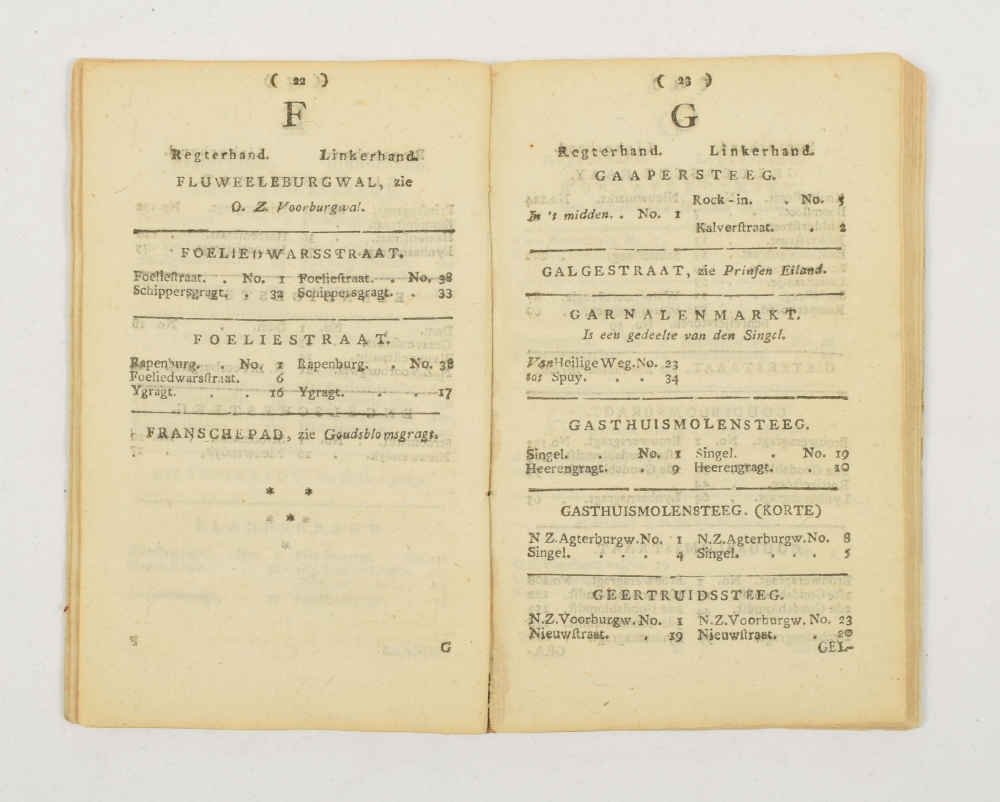 ( 22 )
F
Regterhand. Linkerhand.
FLUWEELEBURGWAL, zie
O. Z. Voorburgwal.
FOELIEDWARSSTRAAT.
Foelieſtraat. . No. 1 Foelieſtraat. . No. 38
Schippersgragt. . 32 Schippersgragt. . 33
FOELIESTRAAT.
Rapenburg. . No. 1 Rapenburg. No. 38
Foeliedwarsſtraat. 6
Ygragt. . . 16 Ygragt. . . 17
FRANSCHEPAD, zie Goudsblomsgragt.
* *
*
G
( 23 )
G
Regterhand. Linkerhand.
GAAPERSTEEG.
Rock-in. . No. 5
In 't midden. . No. 1
Kalverſtraat. . 2
GALGESTRAAT, zie Prinſen Eiland.
GARNALENMARKT.
Is een gedeelte van den Singel.
Van Heilige Weg. No. 23
tot Spuy. . . 34
GASTHUISMOLENSTEEG.
Singel. . No. 1 Singel. . No. 19
Heerengragt. . 9 Heerengragt. . 10
GASTHUISMOLENSTEEG. (KORTE)
N Z. Agterburgw. No. 1 N. Z. Agterburgw. No. 8
Singel. . . . 4 Singel. . . . 5
GEERTRUIDSSTEEG.
N. Z. Voorburgw. No. 1 N. Z. Voorburgw. No. 23
Nieuwſtraat. . 19 Nieuwſtraat. . 20
GEL-